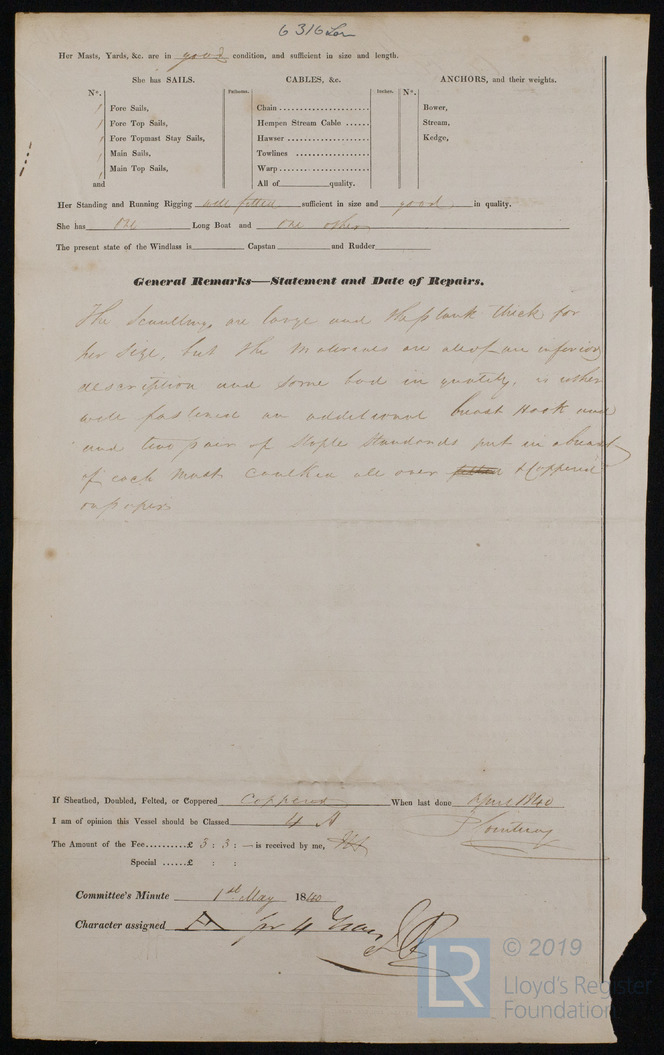 6316 Lon
Her Masts, Yards, &c. are in good condition, and sufficient in size and length.
She has SAILS.
CABLES, &c.
ANCHORS, and their weights.
N°.
Fathoms.
Inches.
N°.
1 Fore Sails,
Chain
Bower,
1 Fore Top Sails,
Hempen Stream Cable
Stream,
1 Fore Topmast Stay Sails,
Hawser
Kedge,
1 Main Sails,
Towlines
1 Main Top Sails,
Warp
and
All of quality.
Her Standing and Running Rigging well fitted sufficient in size and good in quality.
She has one Long Boat and one other
The present state of the Windlass is Capstan and Rudder
General Remarks—Statement and Date of Repairs.
The Scantlings are large and the plank thick for
her Size, but the Materials are all of an inferior
description and some bad in quality, is other
well fastened an additional breast Hook and
and two pair of Staple Standards put in abreast
of each Mast Caulked all over & Coppered
on paper
If Sheathed, Doubled, Felted, or Coppered Coppered When last done April 1840
I am of opinion this Vessel should be Classed 4 A
The Amount of the Fee......£ 3 : 3 : — is received by me,
Special ......£ : :
Committee's Minute 1st May 1840
Character assigned A for 4 Years
LR
© 2019
Lloyd's Register
Foundation